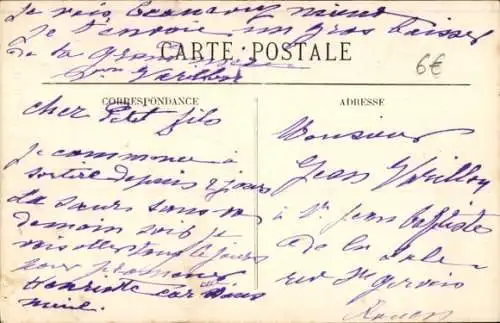 je vais beaucoup mieux
je t'envoie un gros baiser
de ta Grand mère
CARTE POSTALE
6€
CORRESPONDANCE
ADRESSE
cher Petit fils
je commence à
sortir depuis 2 jours
ta sœur sans
demain soir je
tous le jours
pour promener
Henriette car
Monsieur
Jean
à St Jean Baptiste
de la Salle
rue St Gervais
Rouen